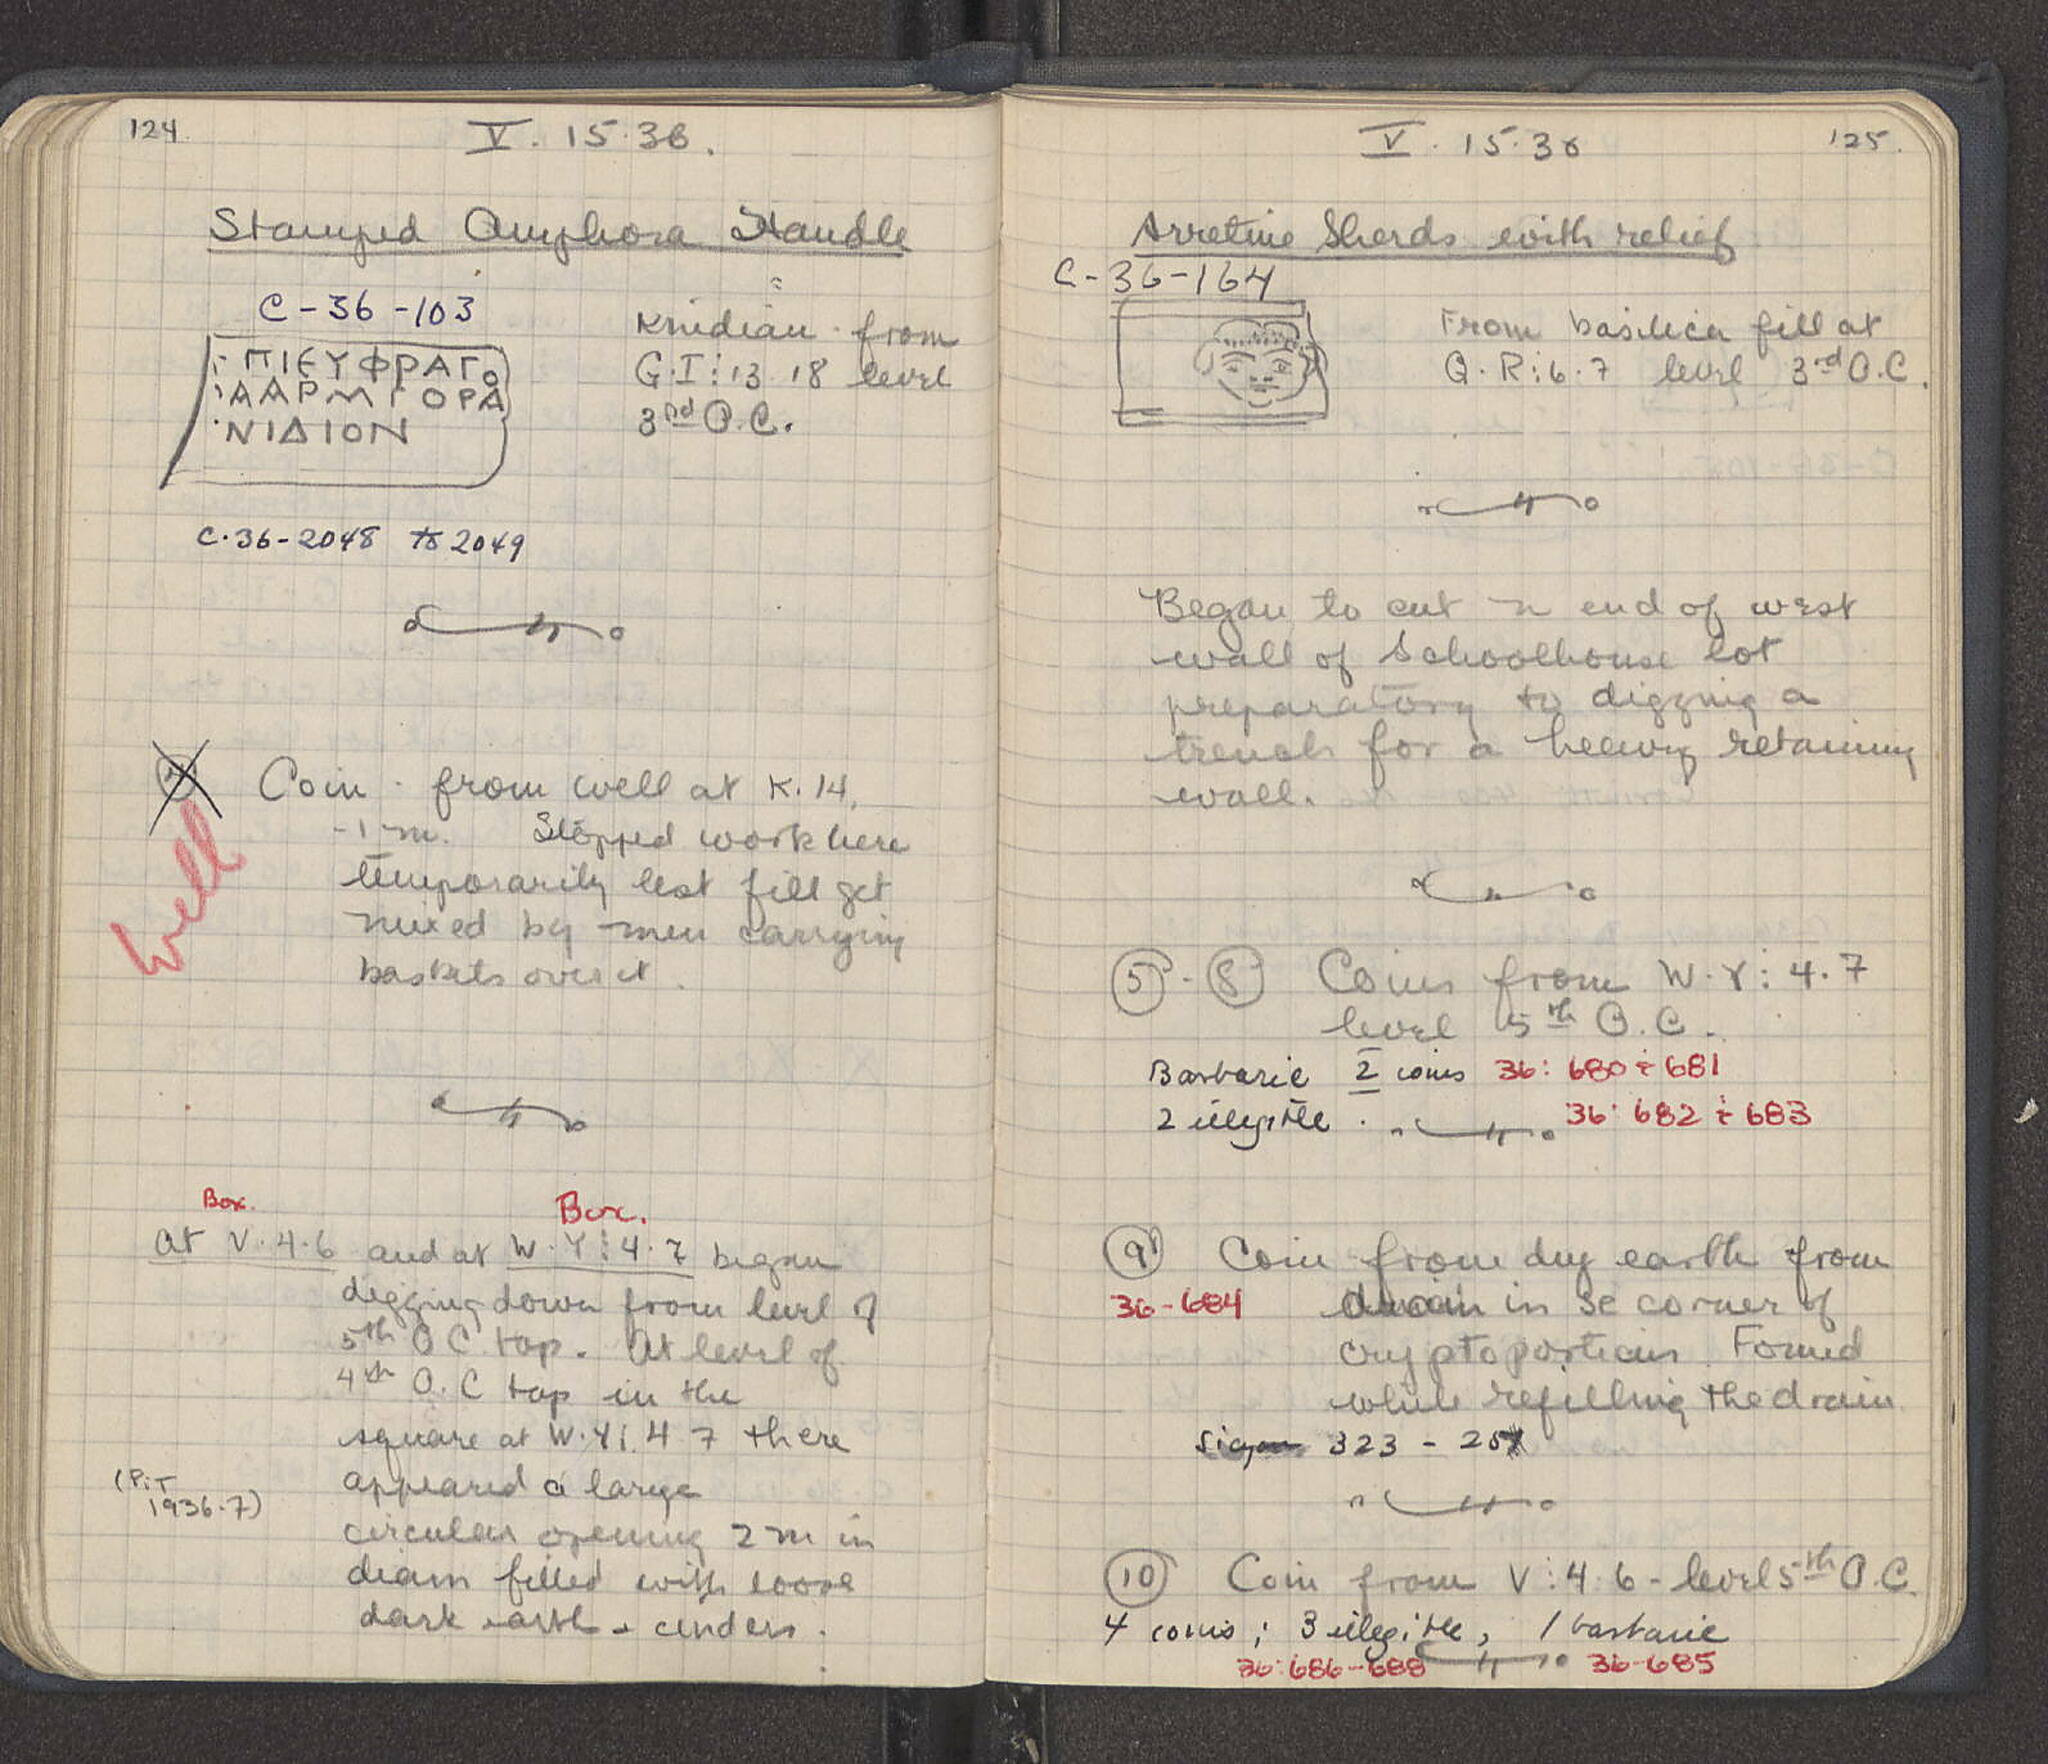 124
V. 15.36.
Stamped Amphora Handle
C-36-103
Knidian from
G.I:13.18 level
3rd O.C.
ΠΙΕΥΦΡΑΓΟ
ΑΑΡΜΓΟΡΑ
ΝΙΔΙΟΝ
C.36-2048 to 2049
Coin - from well at K.14,
-1 m. Stopped work here
temporarily lest fill get
mixed by men carrying
baskets over it.
Well
Box. Box.
At V.4.6 and at W.Y:4.7 began
digging down from level of
5th O C top. At level of
4th O.C top in the
square at W.Y: 4 7 there
appeared a large
(Pit
1936.7)
circular opening 2 m in
diam filled with loose
dark earth + cinders.
V. 15.36
125.
Arretine Sherds with relief
C-36-164
From basilica fill at
Q.R:6.7 level 3rd O.C.
Began to cut n end of west
wall of Schoolhouse lot
preparatory to digging a
trench for a heavy retaining
wall.
5 - 8 Coins from W.Y:4.7
level 5th O.C.
Barbaric 2 coins 36: 680 + 681
2 illegible. 36: 682 + 683
9 Coin from dry earth from
36-684 drain in se corner of
cryptoporticus. Found
while refilling the drain
323-251
10 Coin from V:4.6 - level 5th O.C.
4 coins; 3 illegible, 1 barbaric
36:686-688 36-685